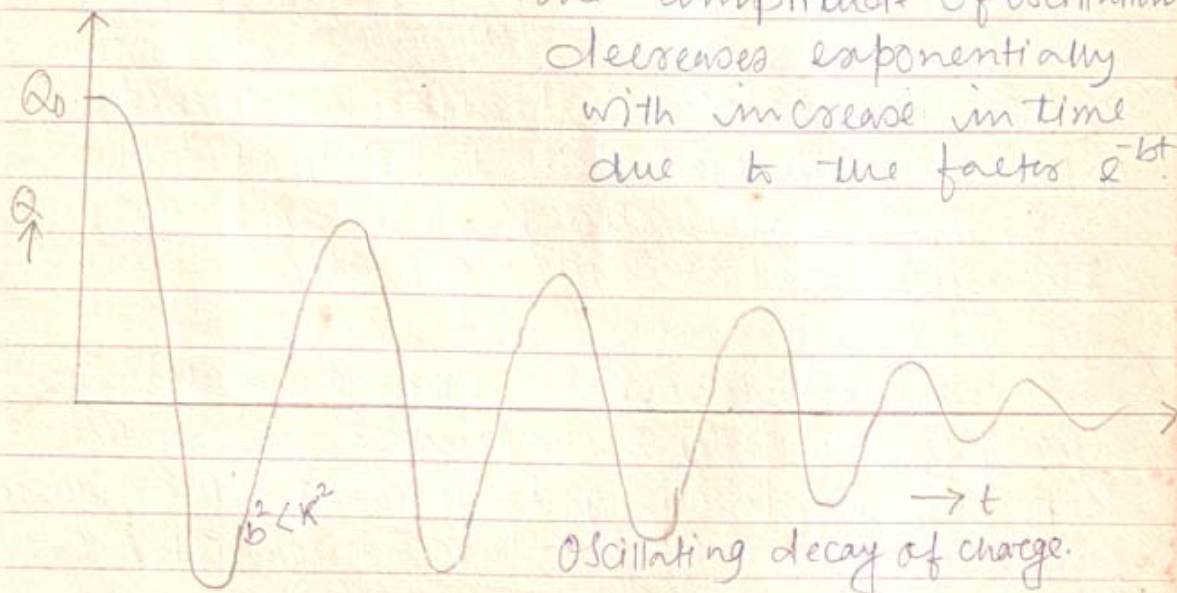 amplitude of oscillation
decreases exponentially
with increase in time
due to the factor e^-bt.
Q₀
Q
↑
b² < K²
→ t
Oscillating decay of charge.